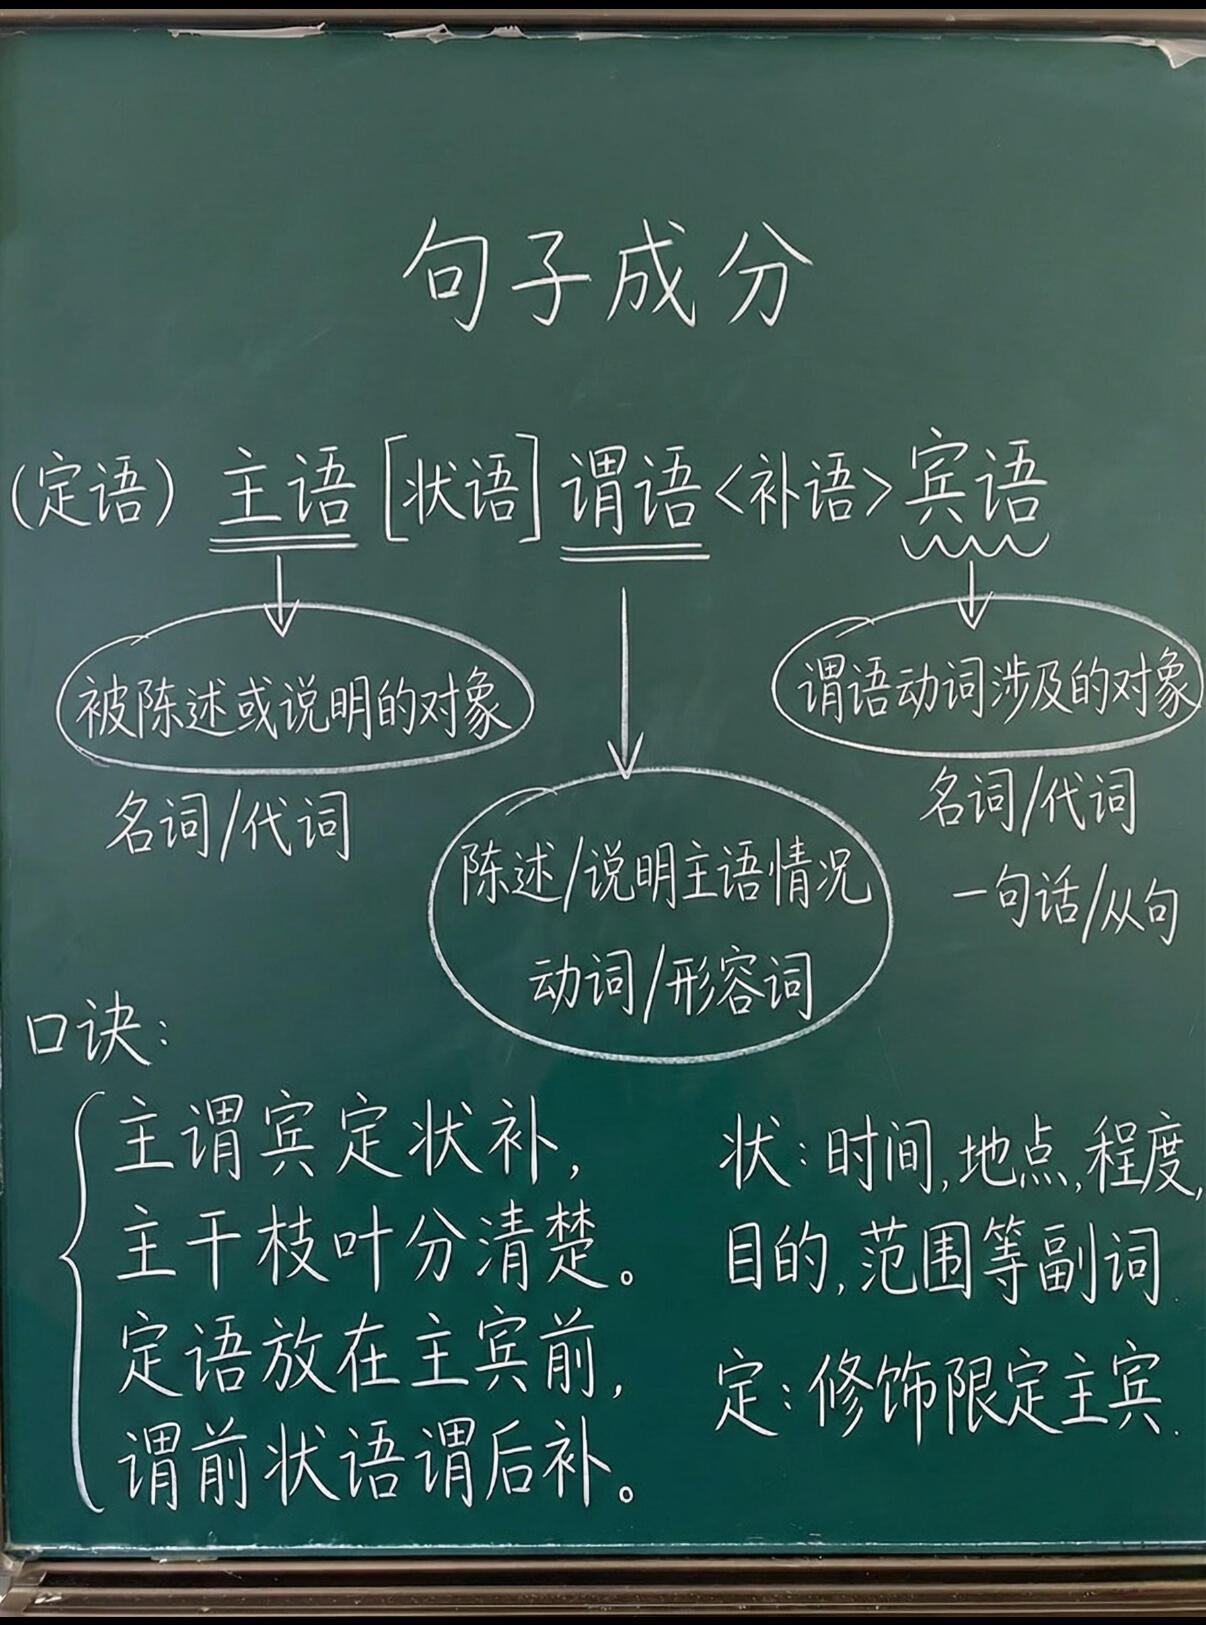 句子成分
(定语) 主语 [状语] 谓语 <补语> 宾语
被陈述或说明的对象
谓语动词涉及的对象
名词/代词
名词/代词
陈述/说明主语情况
一句话/从句
动词/形容词
口诀:
主谓宾定状补,
主干枝叶分清楚。
定语放在主宾前,
谓前状语谓后补。
状:时间,地点,程度,
目的,范围等副词.
定:修饰限定主宾.